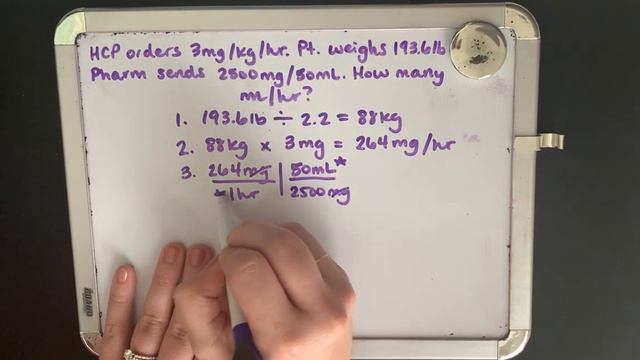 HCP orders 3mg/kg/hr. Pt. weighs 193.6lb
Pharm sends 2500mg/50mL. How many
mL/hr?
1. 193.6lb ÷ 2.2 = 88kg
2. 88kg x 3mg = 264mg/hr
3. 264mg | 50mL*
*1hr | 2500mg